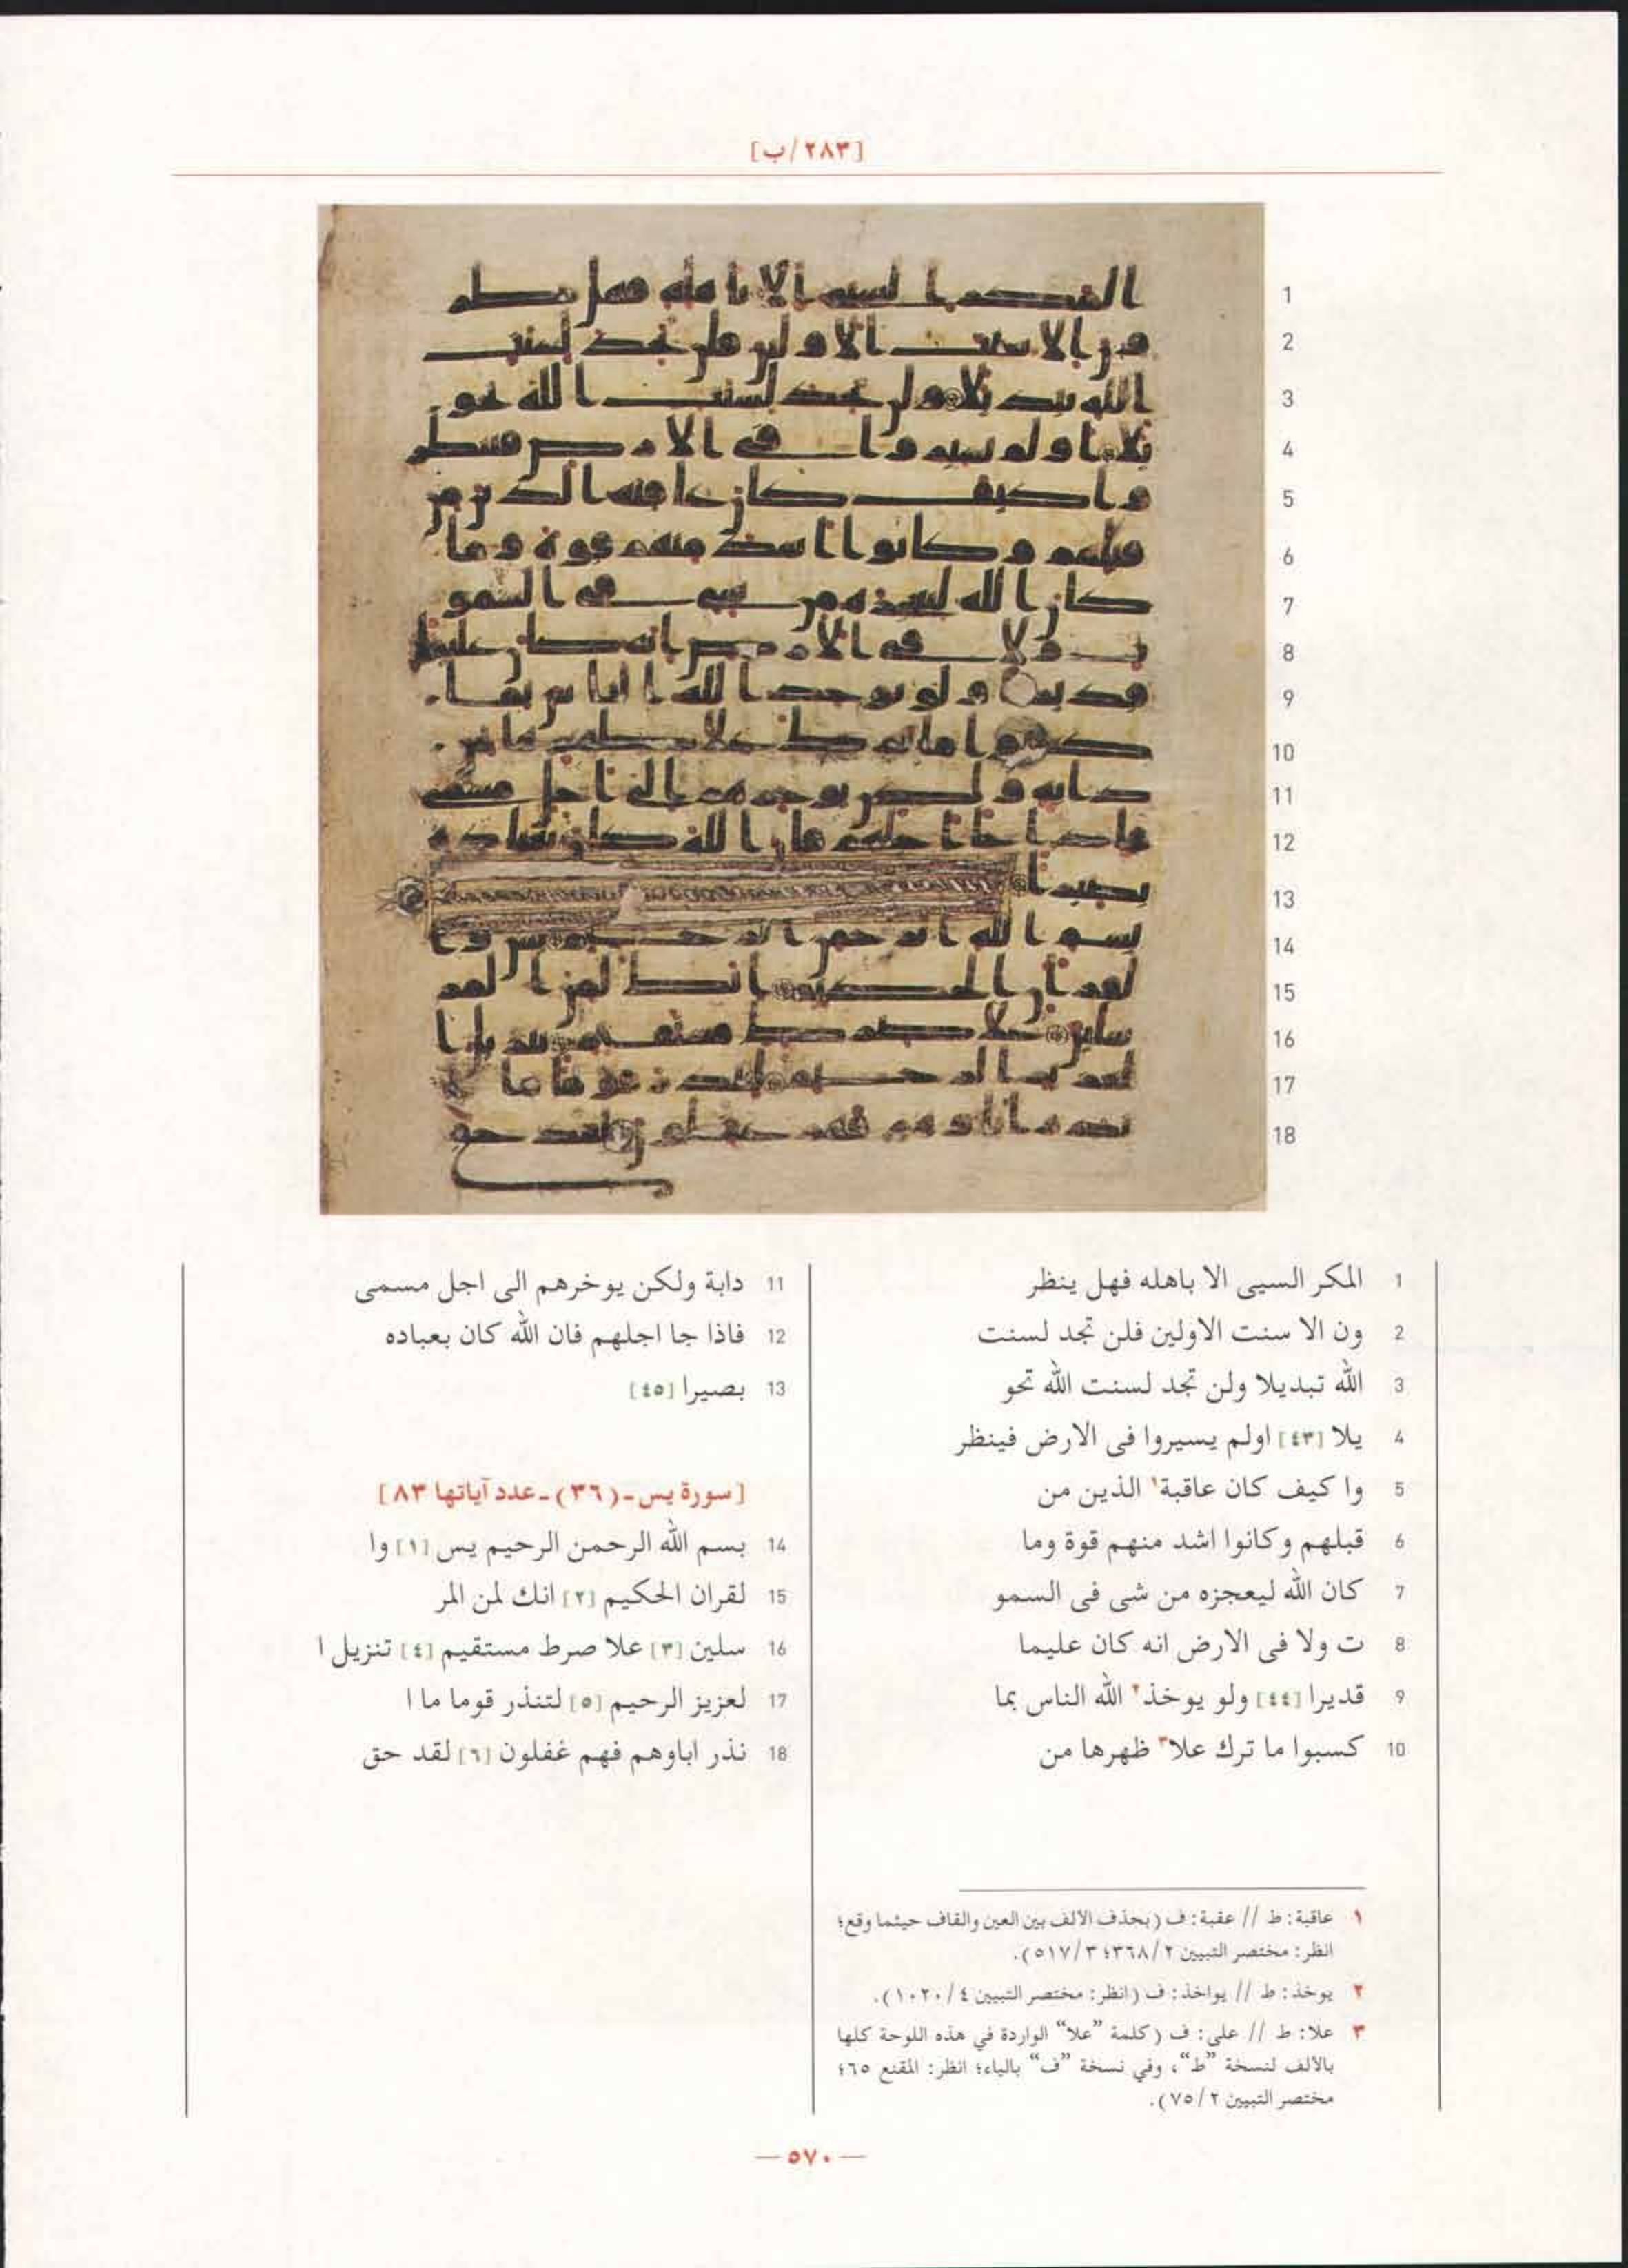 [٢٨٣/ب]
1 المكر السيى الا باهله فهل ينظر
2 ون الا سنت الاولين فلن تجد لسنت
3 الله تبديلا ولن تجد لسنت الله تحو
4 يلا [٤٣] اولم يسيروا فى الارض فينظر
5 وا كيف كان عاقبة١ الذين من
6 قبلهم وكانوا اشد منهم قوة وما
7 كان الله ليعجزه من شى فى السمو
8 ت ولا فى الارض انه كان عليما
9 قديرا [٤٤] ولو يوخذ٢ الله الناس بما
10 كسبوا ما ترك علا٣ ظهرها من
11 دابة ولكن يوخرهم الى اجل مسمى
12 فاذا جا اجلهم فان الله كان بعباده
13 بصيرا [٤٥]
[سورة يس-(٣٦)-عدد آياتها ٨٣]
14 بسم الله الرحمن الرحيم يس [١] وا
15 لقران الحكيم [٢] انك لمن المر
16 سلين [٣] علا صرط مستقيم [٤] تنزيل ا
17 لعزيز الرحيم [٥] لتنذر قوما ما ا
18 نذر اباوهم فهم غفلون [٦] لقد حق
١ عاقبة: ط // عقبة: ف (بحذف الألف بين العين والقاف حيثما وقع؛
انظر: مختصر التبيين ٣٦٨/٢؛ ٥١٧/٣).
٢ يوخذ: ط // يواخذ: ف (انظر: مختصر التبيين ١٠٢٠/٤).
٣ علا: ط // على: ف (كلمة "علا" الواردة في هذه اللوحة كلها
بالألف لنسخة "ط"، وفي نسخة "ف" بالياء؛ انظر: المقنع ٦٥؛
مختصر التبيين ٧٥/٢).
— ٥٧٠ —